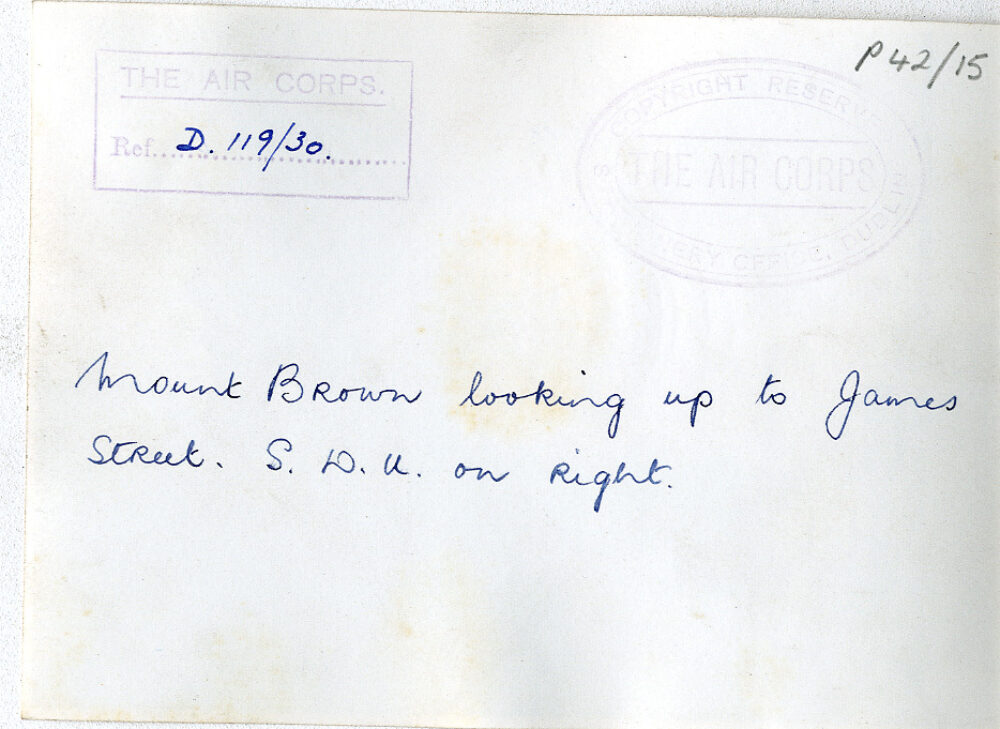 P42/15
THE AIR CORPS.
Ref. D. 119/30.
COPYRIGHT RESERVED
THE AIR CORPS
STATIONERY OFFICE, DUBLIN
Mount Brown looking up to James
Street. S. D. U. on Right.